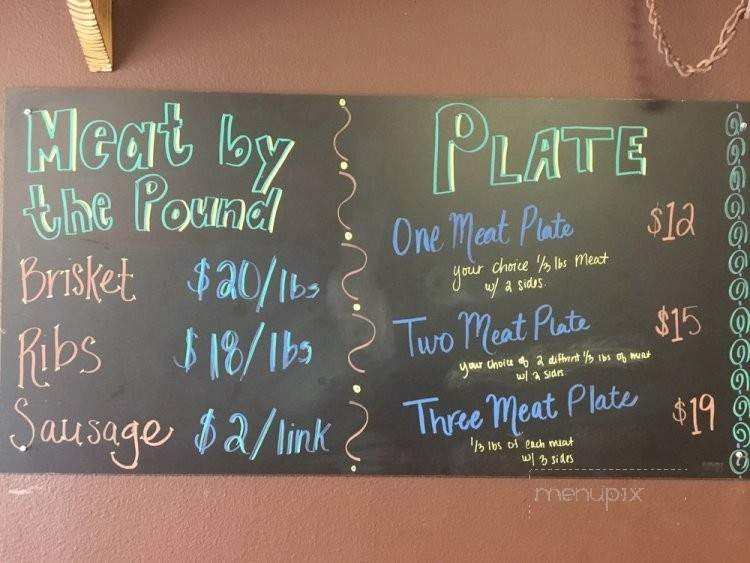 Meat by
the Pound
Brisket $20/lbs
Ribs $18/lbs
Sausage $2/link
PLATE
One Meat Plate $12
your choice 1/3 lbs Meat
w/ 2 sides.
Two Meat Plate $15
your choice of 2 diffrnt 1/3 lbs of meat
w/ 2 sides
Three Meat Plate $19
1/3 lbs of each meat
w/ 3 sides
menupix